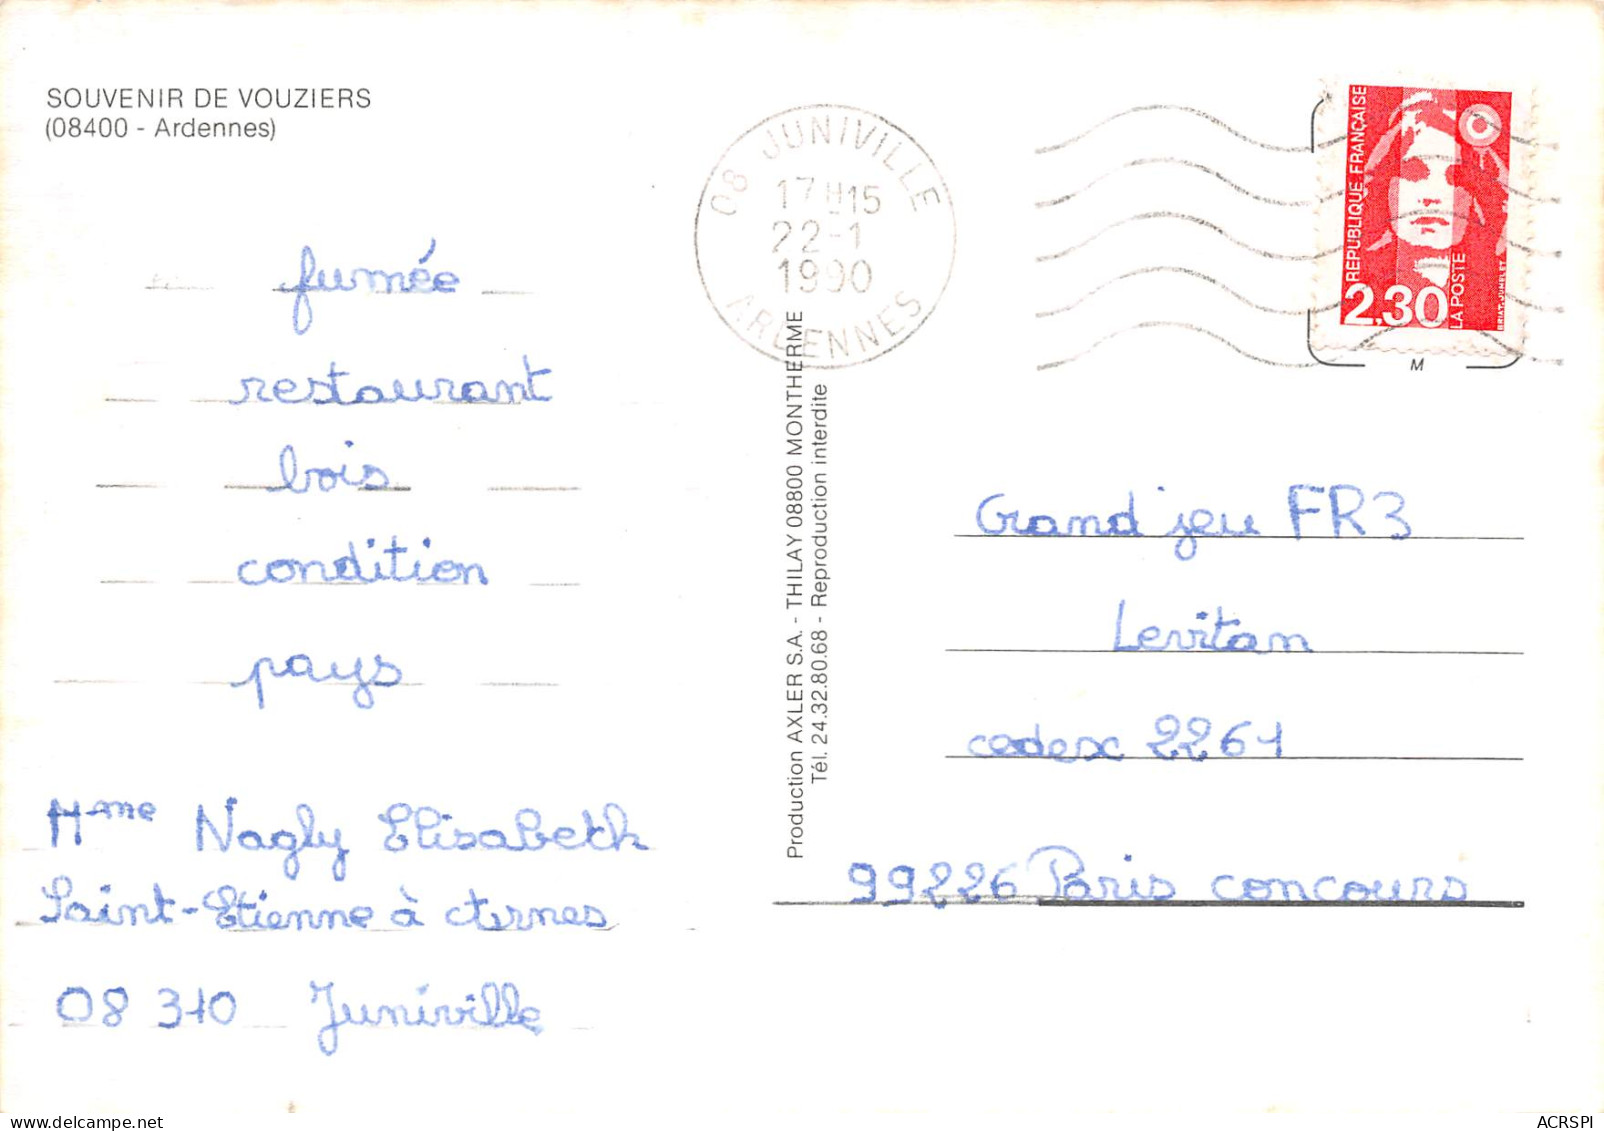 SOUVENIR DE VOUZIERS
(08400 - Ardennes)
fumée
restaurant
bois
condition
pays
Mme Nagly Elisabeth
Saint-Etienne à
08 310 Juniville
Production AXLER S.A. - THILAY 08800 MONTHERME
Tél. 24.32.80.68 - Reproduction interdite
08 JUNIVILLE
17H15
22-1
1990
ARDENNES
RÉPUBLIQUE FRANÇAISE
2,30
LA POSTE
BRIAT-JUMELET
M
Grand jeu FR3
Levitan
cedex 2261
99226 Paris concours
ACRSPI